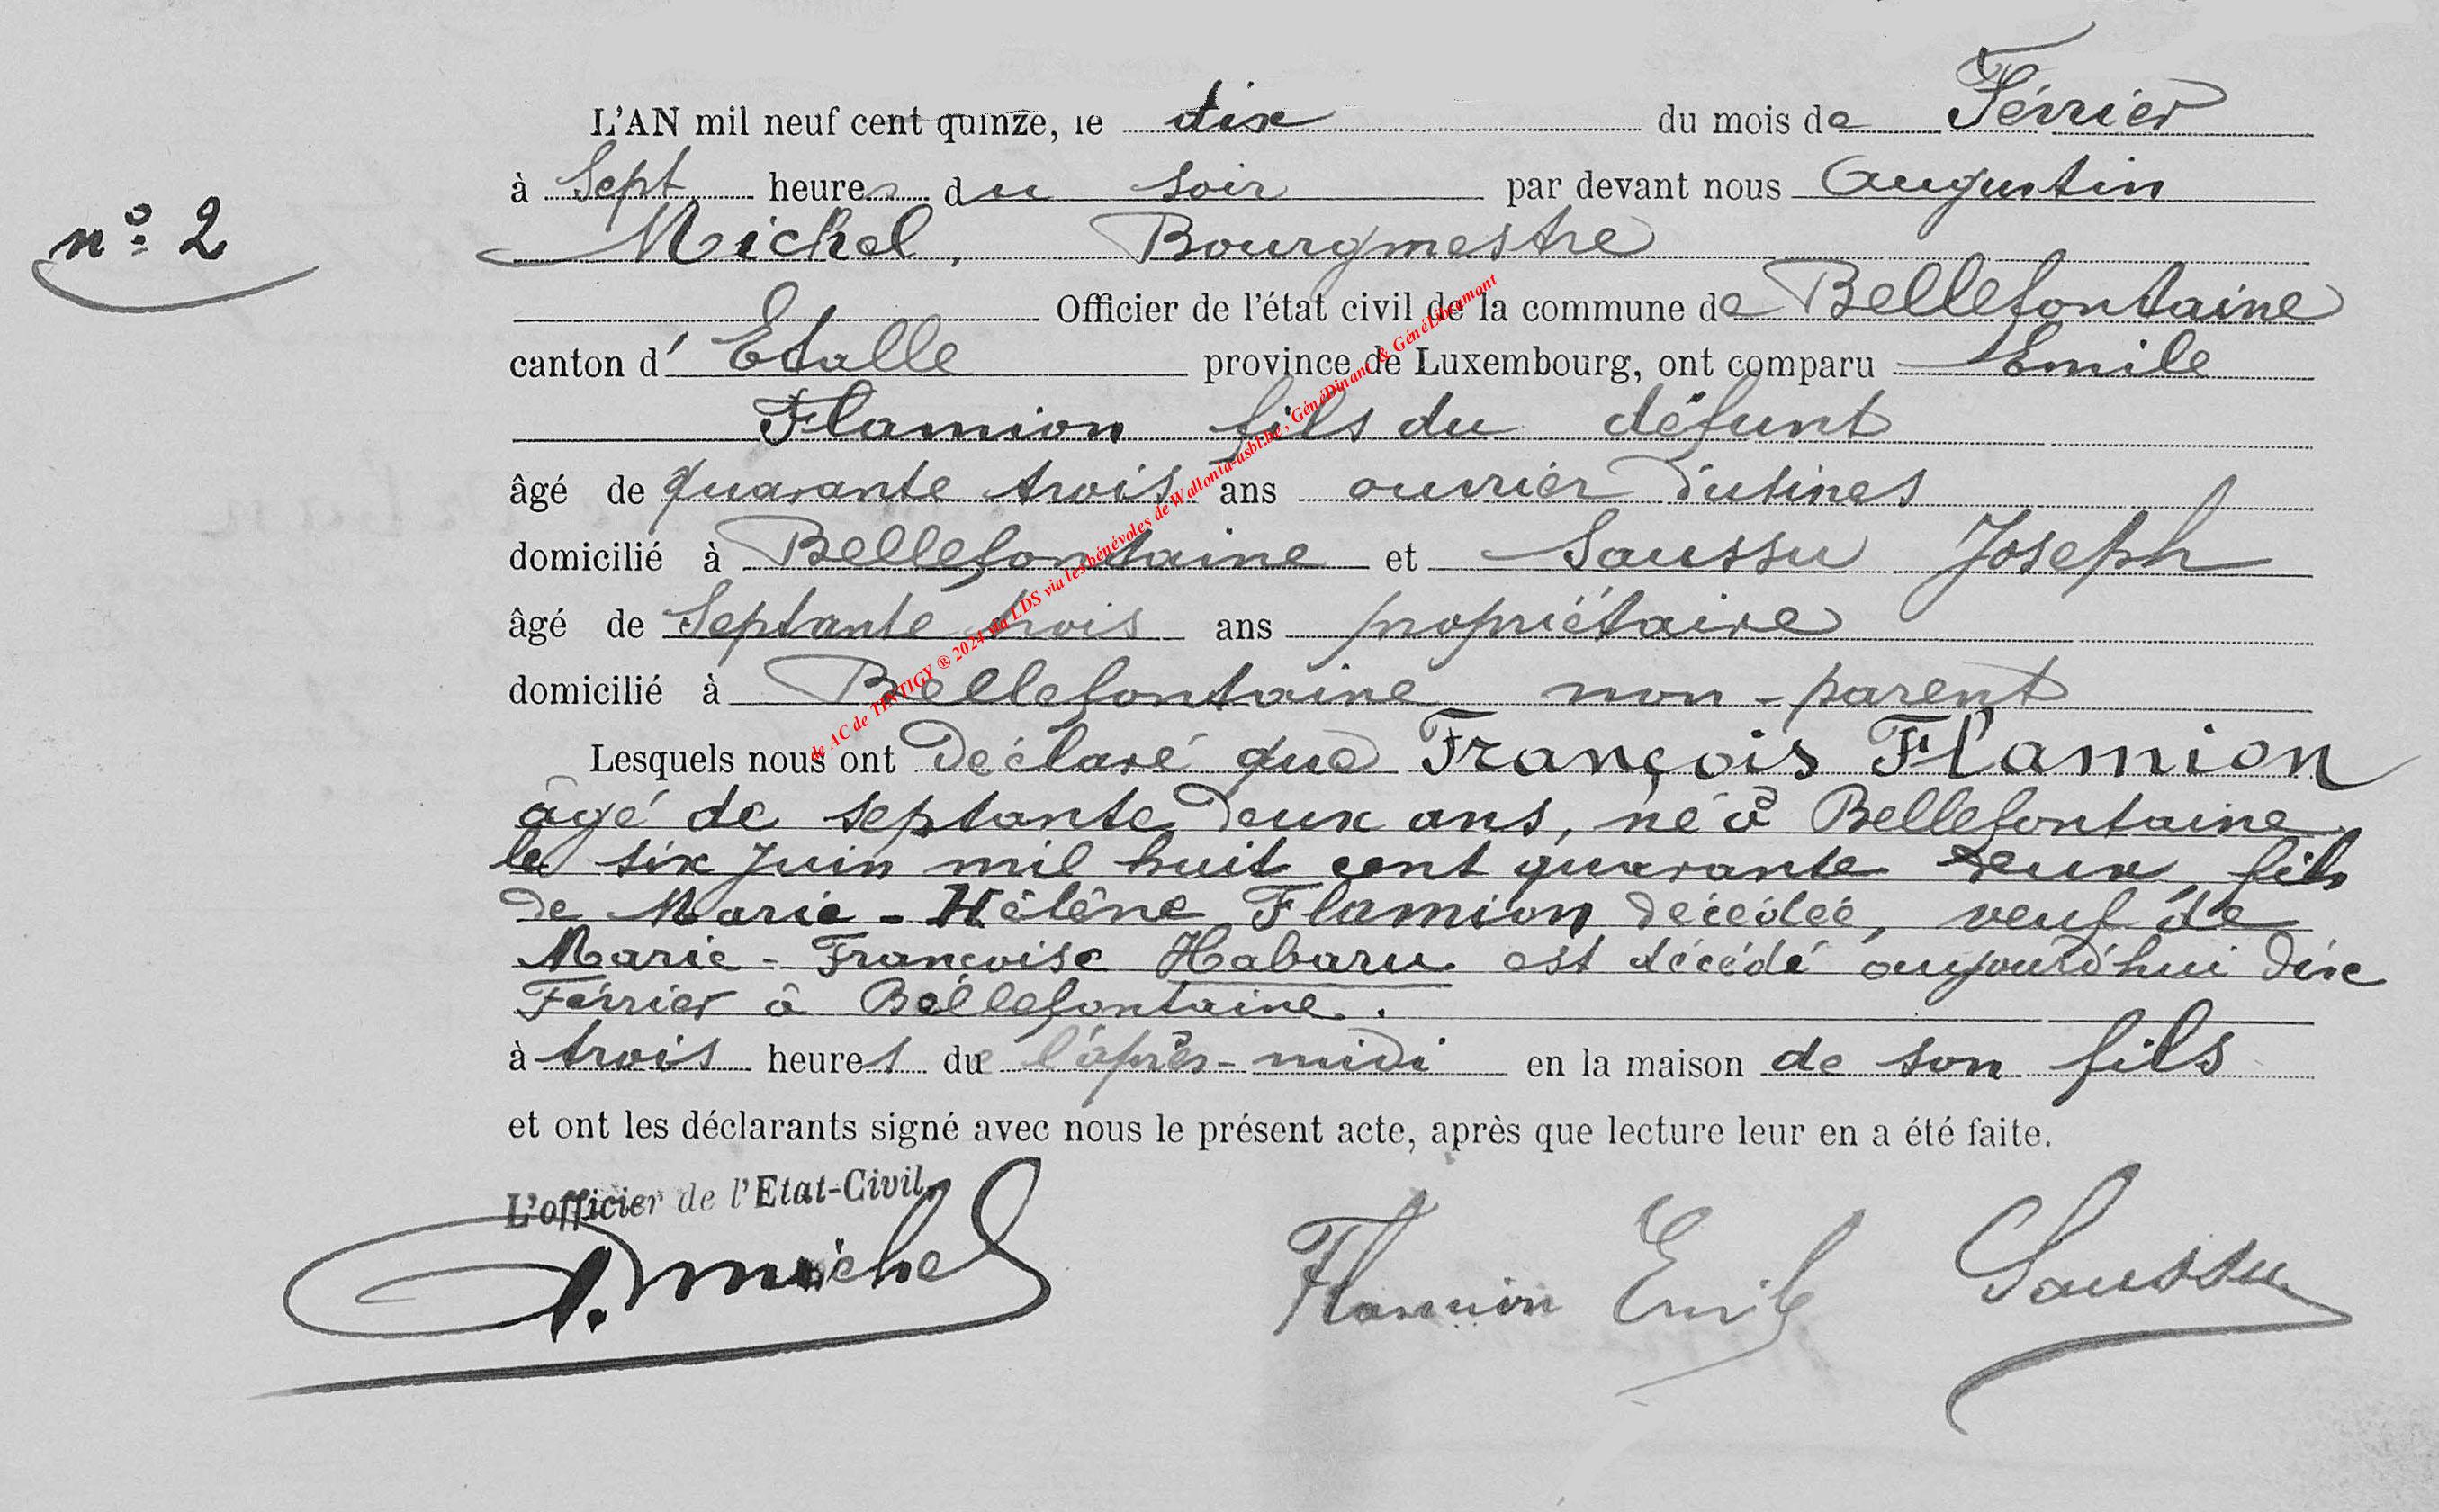 L'AN mil neuf cent quinze, le dix du mois de Février
à Sept heures du soir par devant nous Augustin
n° 2
Michel, Bourgmestre
Officier de l'état civil de la commune de Bellefontaine
canton d' Etalle province de Luxembourg, ont comparu Emile
Flamion fils du défunt
âgé de quarante trois ans ouvrier d'usines
domicilié à Bellefontaine et Saussu Joseph
âgé de Septante trois ans propriétaire
domicilié à Bellefontaine non-parent
Lesquels nous ont déclaré que François Flamion
âgé de septante deux ans, né à Bellefontaine
le six Juin mil huit cent quarante deux, fils
de Marie-Hélène Flamion décédée, veuf de
Marie-Françoise Habaru est décédé aujourd'hui dix
Février à Bellefontaine.
à trois heures de l'après-midi en la maison de son fils
et ont les déclarants signé avec nous le présent acte, après que lecture leur en a été faite.
L'officier de l'Etat-Civil,
A. Michel Flamion Emile Saussu
de AC de TINTIGY ® 2024 via LDS via les bénévoles de Wallonia-asbl.be, GénéDinant & GénéLibramont